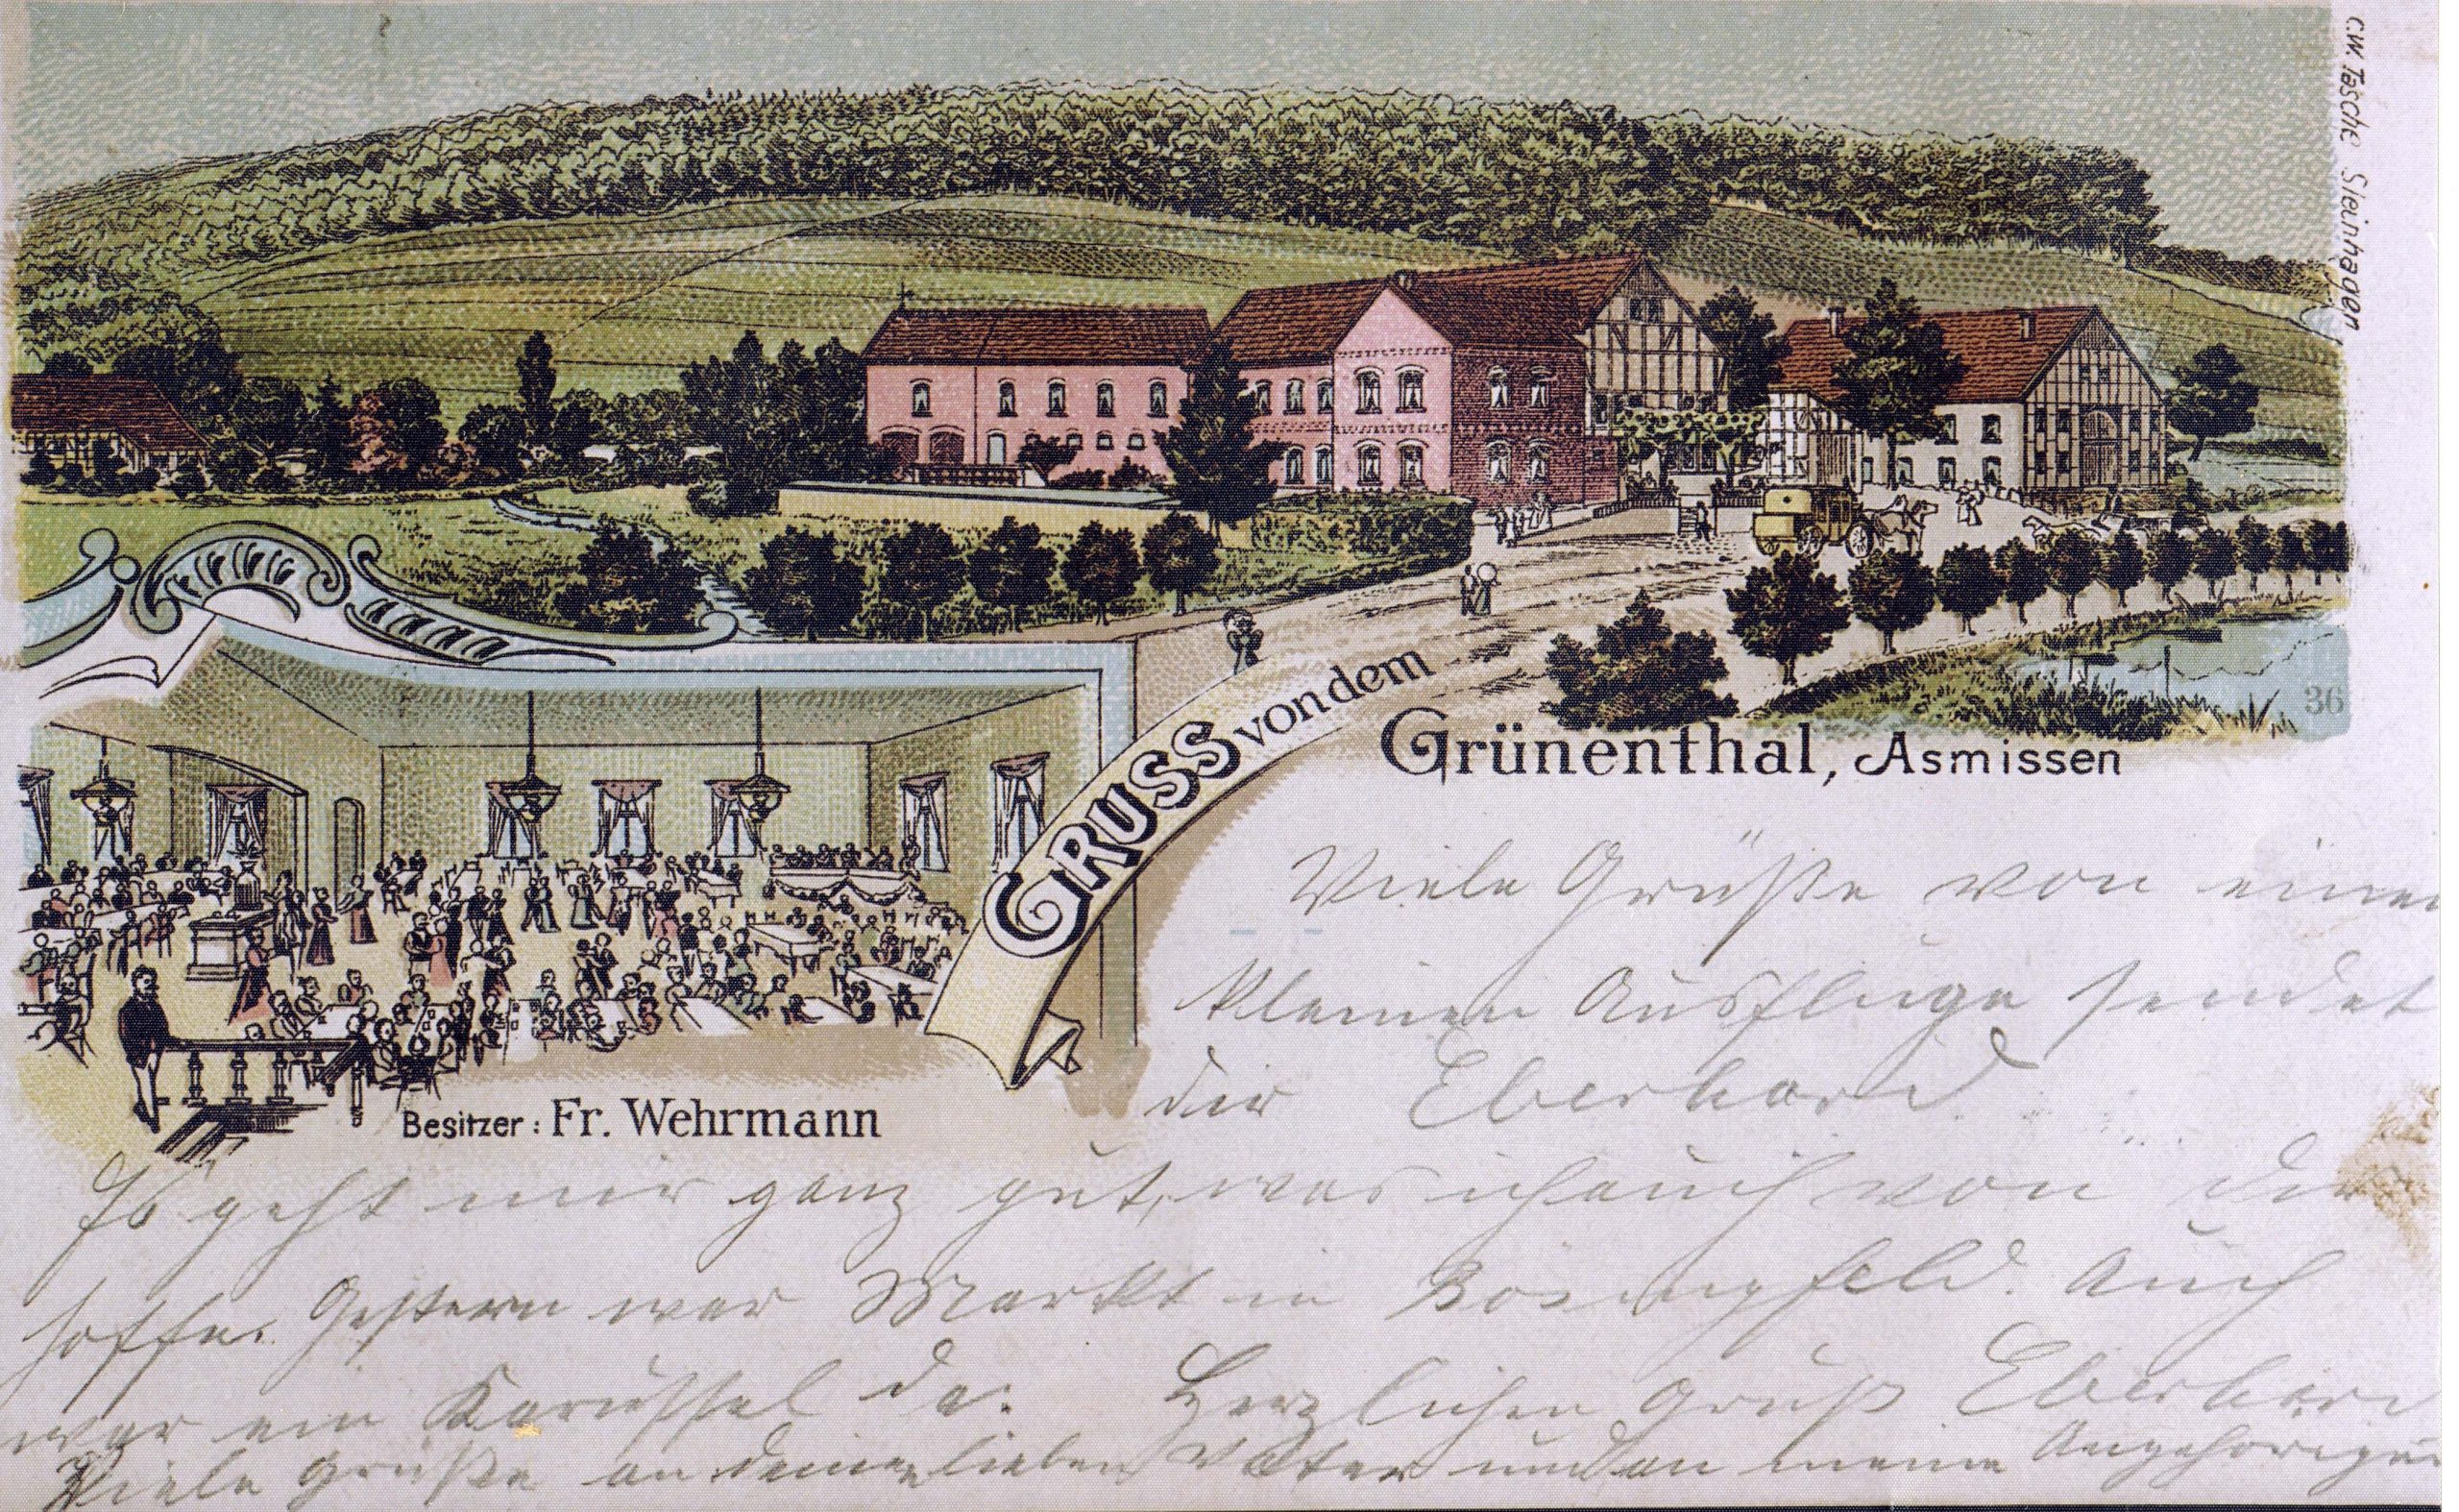 C.W. Tasche Steinhagen
36
GRUSS von dem
Grünenthal, Asmissen
Besitzer: Fr. Wehrmann
Viele Grüße von einem
kleinen Ausfluge sendet
dir Eberhard
Es geht mir ganz gut, was ich auch von dir
hoffe. Gestern war Markt in Bösingfeld. Auch
war ein Karussel da. Herzlichen Gruß Eberhard
Viele Grüße an deinen lieben Vater und an meine Angehörigen